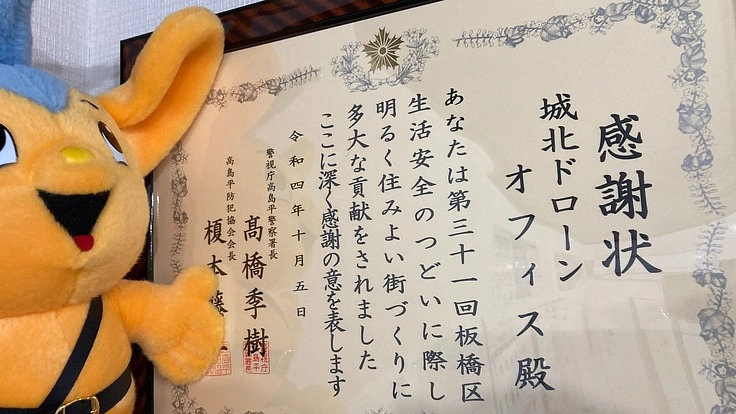 感謝状
城北ドローン
オフィス殿
あなたは第三十一回板橋区
生活安全のつどいに際し
明るく住みよい街づくりに
多大な貢献をされました
ここに深く感謝の意を表します
令和四年十月五日
警視庁高島平警察署長
髙橋季樹
高島平防犯協会会長
榎本